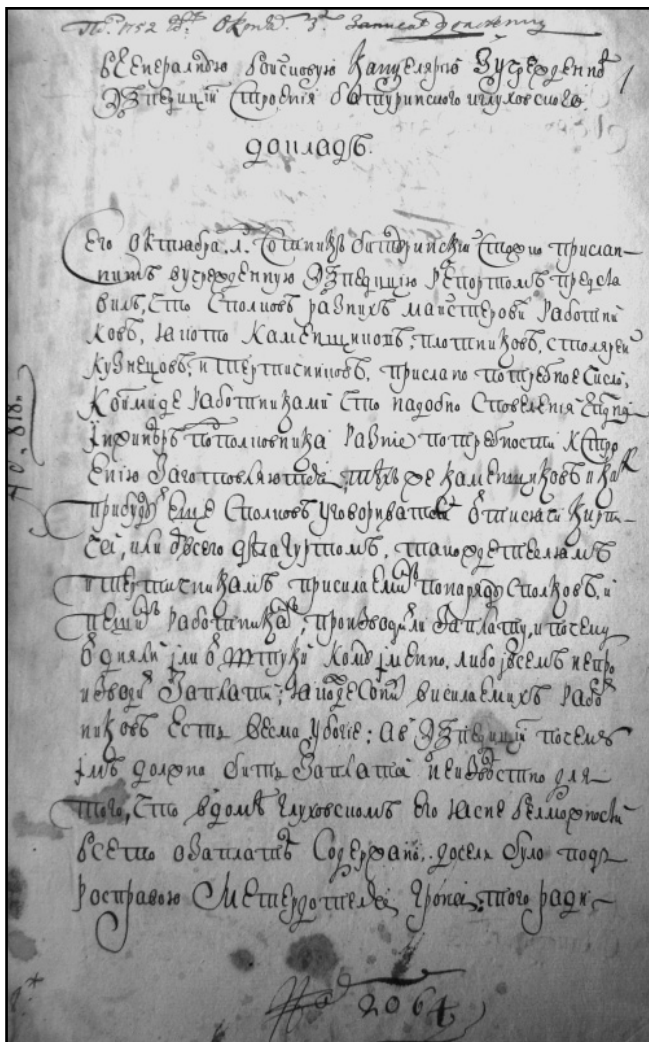 1752
В Генералную войсковую канцелярию з учрежденной
Экспедиции строения батуринского и глуховского
докладъ.
Сего октября сотникъ батуринский Стожко прислан-
нимъ в учрежденную экспедицию репортомъ представ
вилъ, что с полковъ разнихъ майстеровъ и работни
ковъ, якото каменщиковъ, плотниковъ, столярей
кузнецовъ, и тертичниковъ, прислано потребное число,
работниками что надобно с повеления
подполковника разние потребности к стро
ению заготовляются, тѣхъ же каменщиковъ и какъ
прибудутъ еще с полковъ уговоривать от тисячи кирпи-
чей, или от всего дѣла гуртомъ, такожде теслямъ
и тертичникамъ присилаемимъ по наряду с полковъ, и
пешимъ работникамъ, производить ли заплату, и почему
от дня ли или от штуки кому имено, либо и всемъ не про
изводить заплати, висилаемихъ рабо
никовъ есть весма убогие: а в экспедиции почему
имъ должно бить заплати неизвѣстно для
того, что в домѣ глуховскомъ его ясне велможности
все то о заплатѣ содержано, доселя було подъ
росправою того ради
2064
818